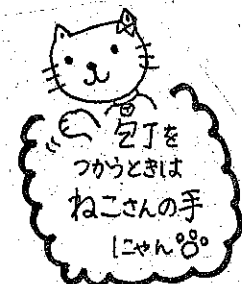 包丁を
つかうときは
ねこさんの手
にゃん